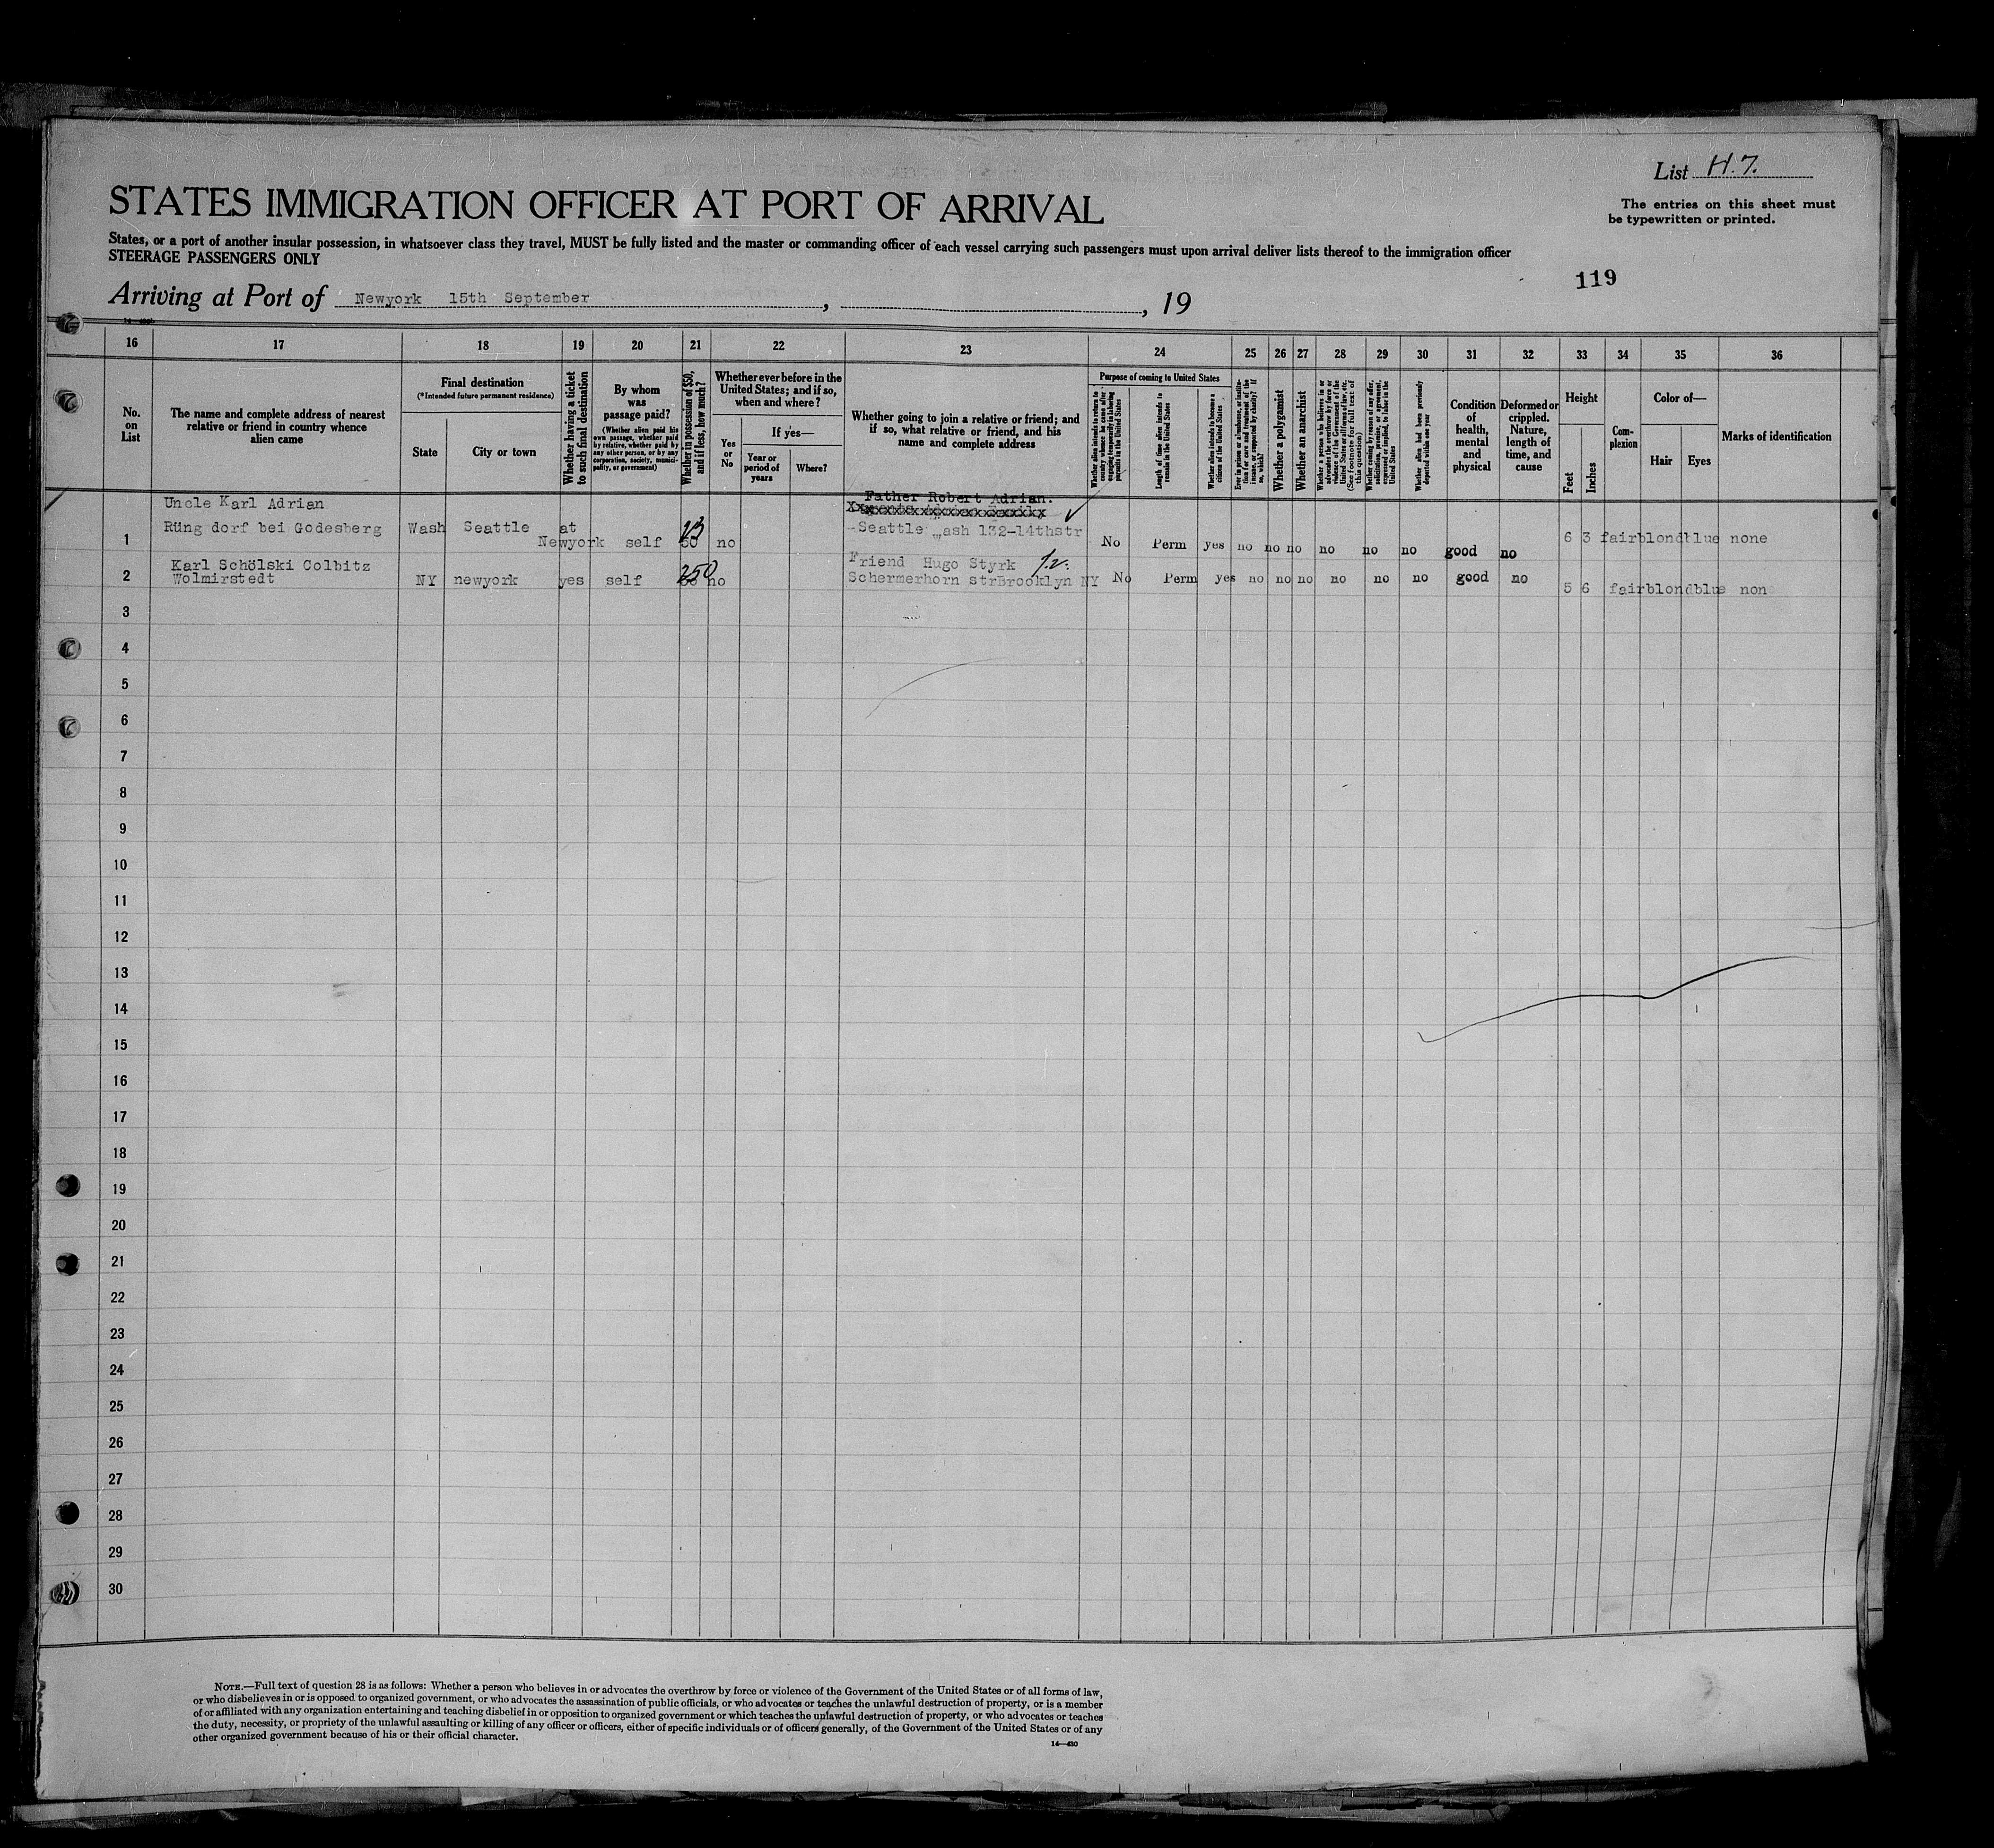 List H.7.
The entries on this sheet must
be typewritten or printed.
STATES IMMIGRATION OFFICER AT PORT OF ARRIVAL
States, or a port of another insular possession, in whatsoever class they travel, MUST be fully listed and the master or commanding officer of each vessel carrying such passengers must upon arrival deliver lists thereof to the immigration officer
STEERAGE PASSENGERS ONLY
119
Arriving at Port of Newyork 15th September , , 19
16 17 18 19 20 21 22 23 24 25 26 27 28 29 30 31 32 33 34 35 36
No.
on
List
The name and complete address of nearest
relative or friend in country whence
alien came
Final destination
(*Intended future permanent residence)
State
City or town
Whether having a ticket
to such final destination
By whom
was
passage paid?
(Whether alien paid his
own passage, whether paid
by relative, whether paid by
any other person, or by any
corporation, society, munici-
pality, or government)
Whether in possession of $50,
and if less, how much?
Whether ever before in the
United States; and if so,
when and where?
Yes
or
No
If yes—
Year or
period of
years
Where?
Whether going to join a relative or friend; and
if so, what relative or friend, and his
name and complete address
Purpose of coming to United States
Whether alien intends to return to
country whence he came after
engaging temporarily in laboring
pursuits in the United States
Length of time alien intends to
remain in the United States
Whether alien intends to become a
citizen of the United States
Ever in prison or almshouse, or institu-
tion for care and treatment of the
insane, or supported by charity? If
so, which?
Whether a polygamist
Whether an anarchist
Whether a person who believes in or
advocates the overthrow by force or
violence of the Government of the
United States or all forms of law, etc.
(See footnote for full text of
this question)
Whether coming by reason of any offer,
solicitation, promise, or agreement,
expressed or implied, to labor in the
United States
Whether alien had been previously
deported within one year
Condition
of
health,
mental
and
physical
Deformed or
crippled.
Nature,
length of
time, and
cause
Height
Feet
Inches
Com-
plexion
Color of—
Hair
Eyes
Marks of identification
Uncle Karl Adrian
Father Robert Adrian.
Rüng dorf bei Godesberg Wash Seattle at
Seattle ash 132-14thstr
1 Newyork self 13 no No Perm yes no no no no no no good no 6 3 fair blond blue none
Karl Schölski Colbitz
Friend Hugo Styrk
2 Wolmirstedt NY newyork yes self 250 no Schermerhorn strBrooklyn NY No Perm yes no no no no no no good no 5 6 fair blond blue non
3
4
5
6
7
8
9
10
11
12
13
14
15
16
17
18
19
20
21
22
23
24
25
26
27
28
29
30
NOTE.—Full text of question 28 is as follows: Whether a person who believes in or advocates the overthrow by force or violence of the Government of the United States or of all forms of law,
or who disbelieves in or is opposed to organized government, or who advocates the assassination of public officials, or who advocates or teaches the unlawful destruction of property, or is a member
of or affiliated with any organization entertaining and teaching disbelief in or opposition to organized government or which teaches the unlawful destruction of property, or who advocates or teaches
the duty, necessity, or propriety of the unlawful assaulting or killing of any officer or officers, either of specific individuals or of officers generally, of the Government of the United States or of any
other organized government because of his or their official character.
14—430